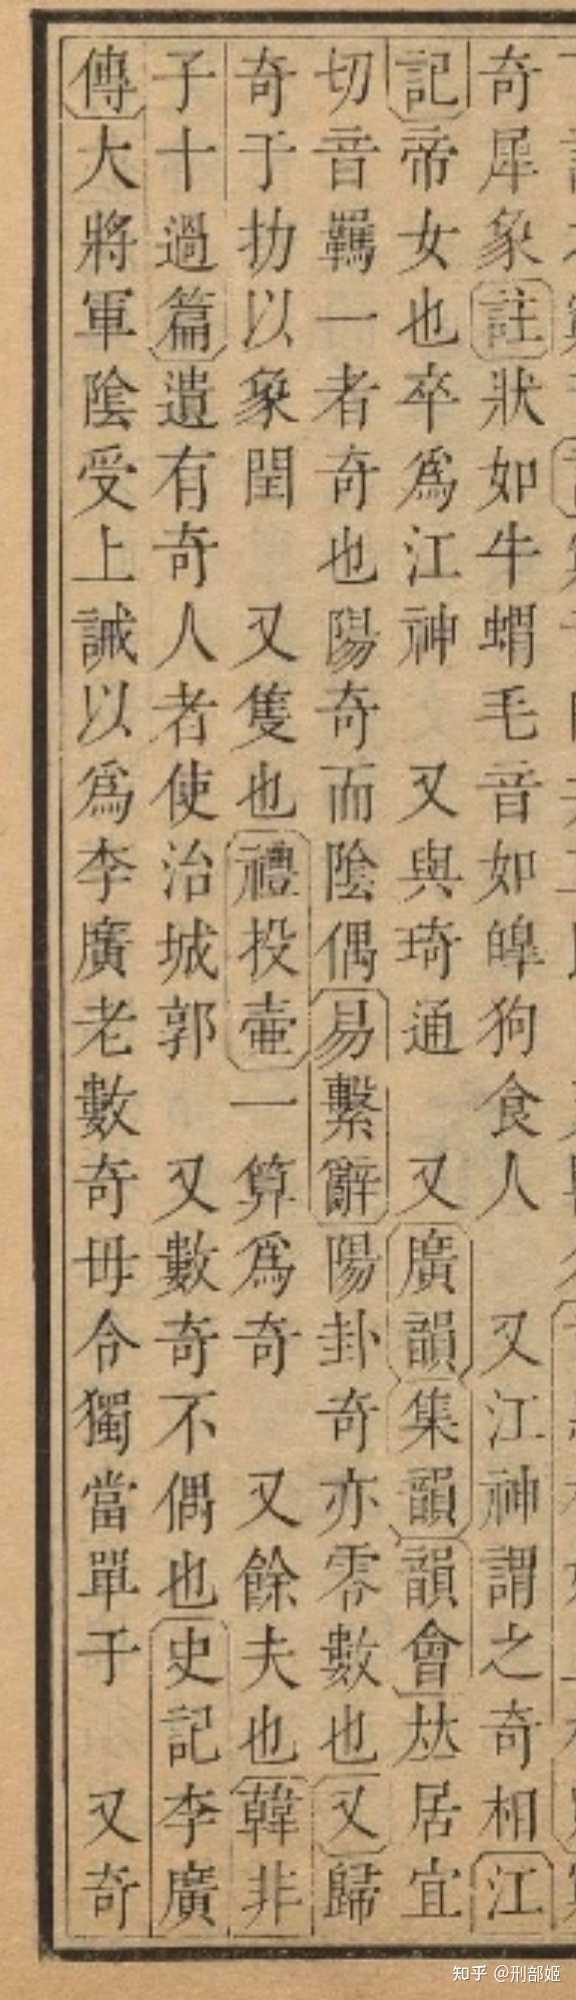 奇犀象註狀如牛蝟毛音如嗥狗食人　又江神謂之奇相江
記帝女也卒爲江神　又與琦通　又廣韻集韻韻會𠀤居宜
切音羈一者奇也陽奇而陰偶易繫辭陽卦奇亦零數也又歸
奇于扐以象閏　又隻也禮投壷一算爲奇　又餘夫也韓非
子十過篇遺有奇人者使治城郭　又數奇不偶也史記李廣
傳大將軍陰受上誡以爲李廣老數奇毋令獨當單于　又奇
知乎 @刑部姬